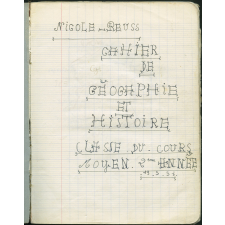 NICOLE REUSS
CAHIER
DE
GÉOGRAPHIE
ET
HISTOIRE
CLASSE DU COURS
MOYEN 2ᵐᵉ ANNÉE